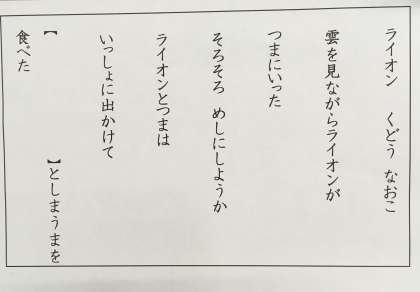 ライオン　くどう　なおこ
雲を見ながらライオンが
つまにいった
そろそろ　めしにしようか
ライオンとつまは
いっしょに出かけて
【　　　　　　　】としまうまを
食べた